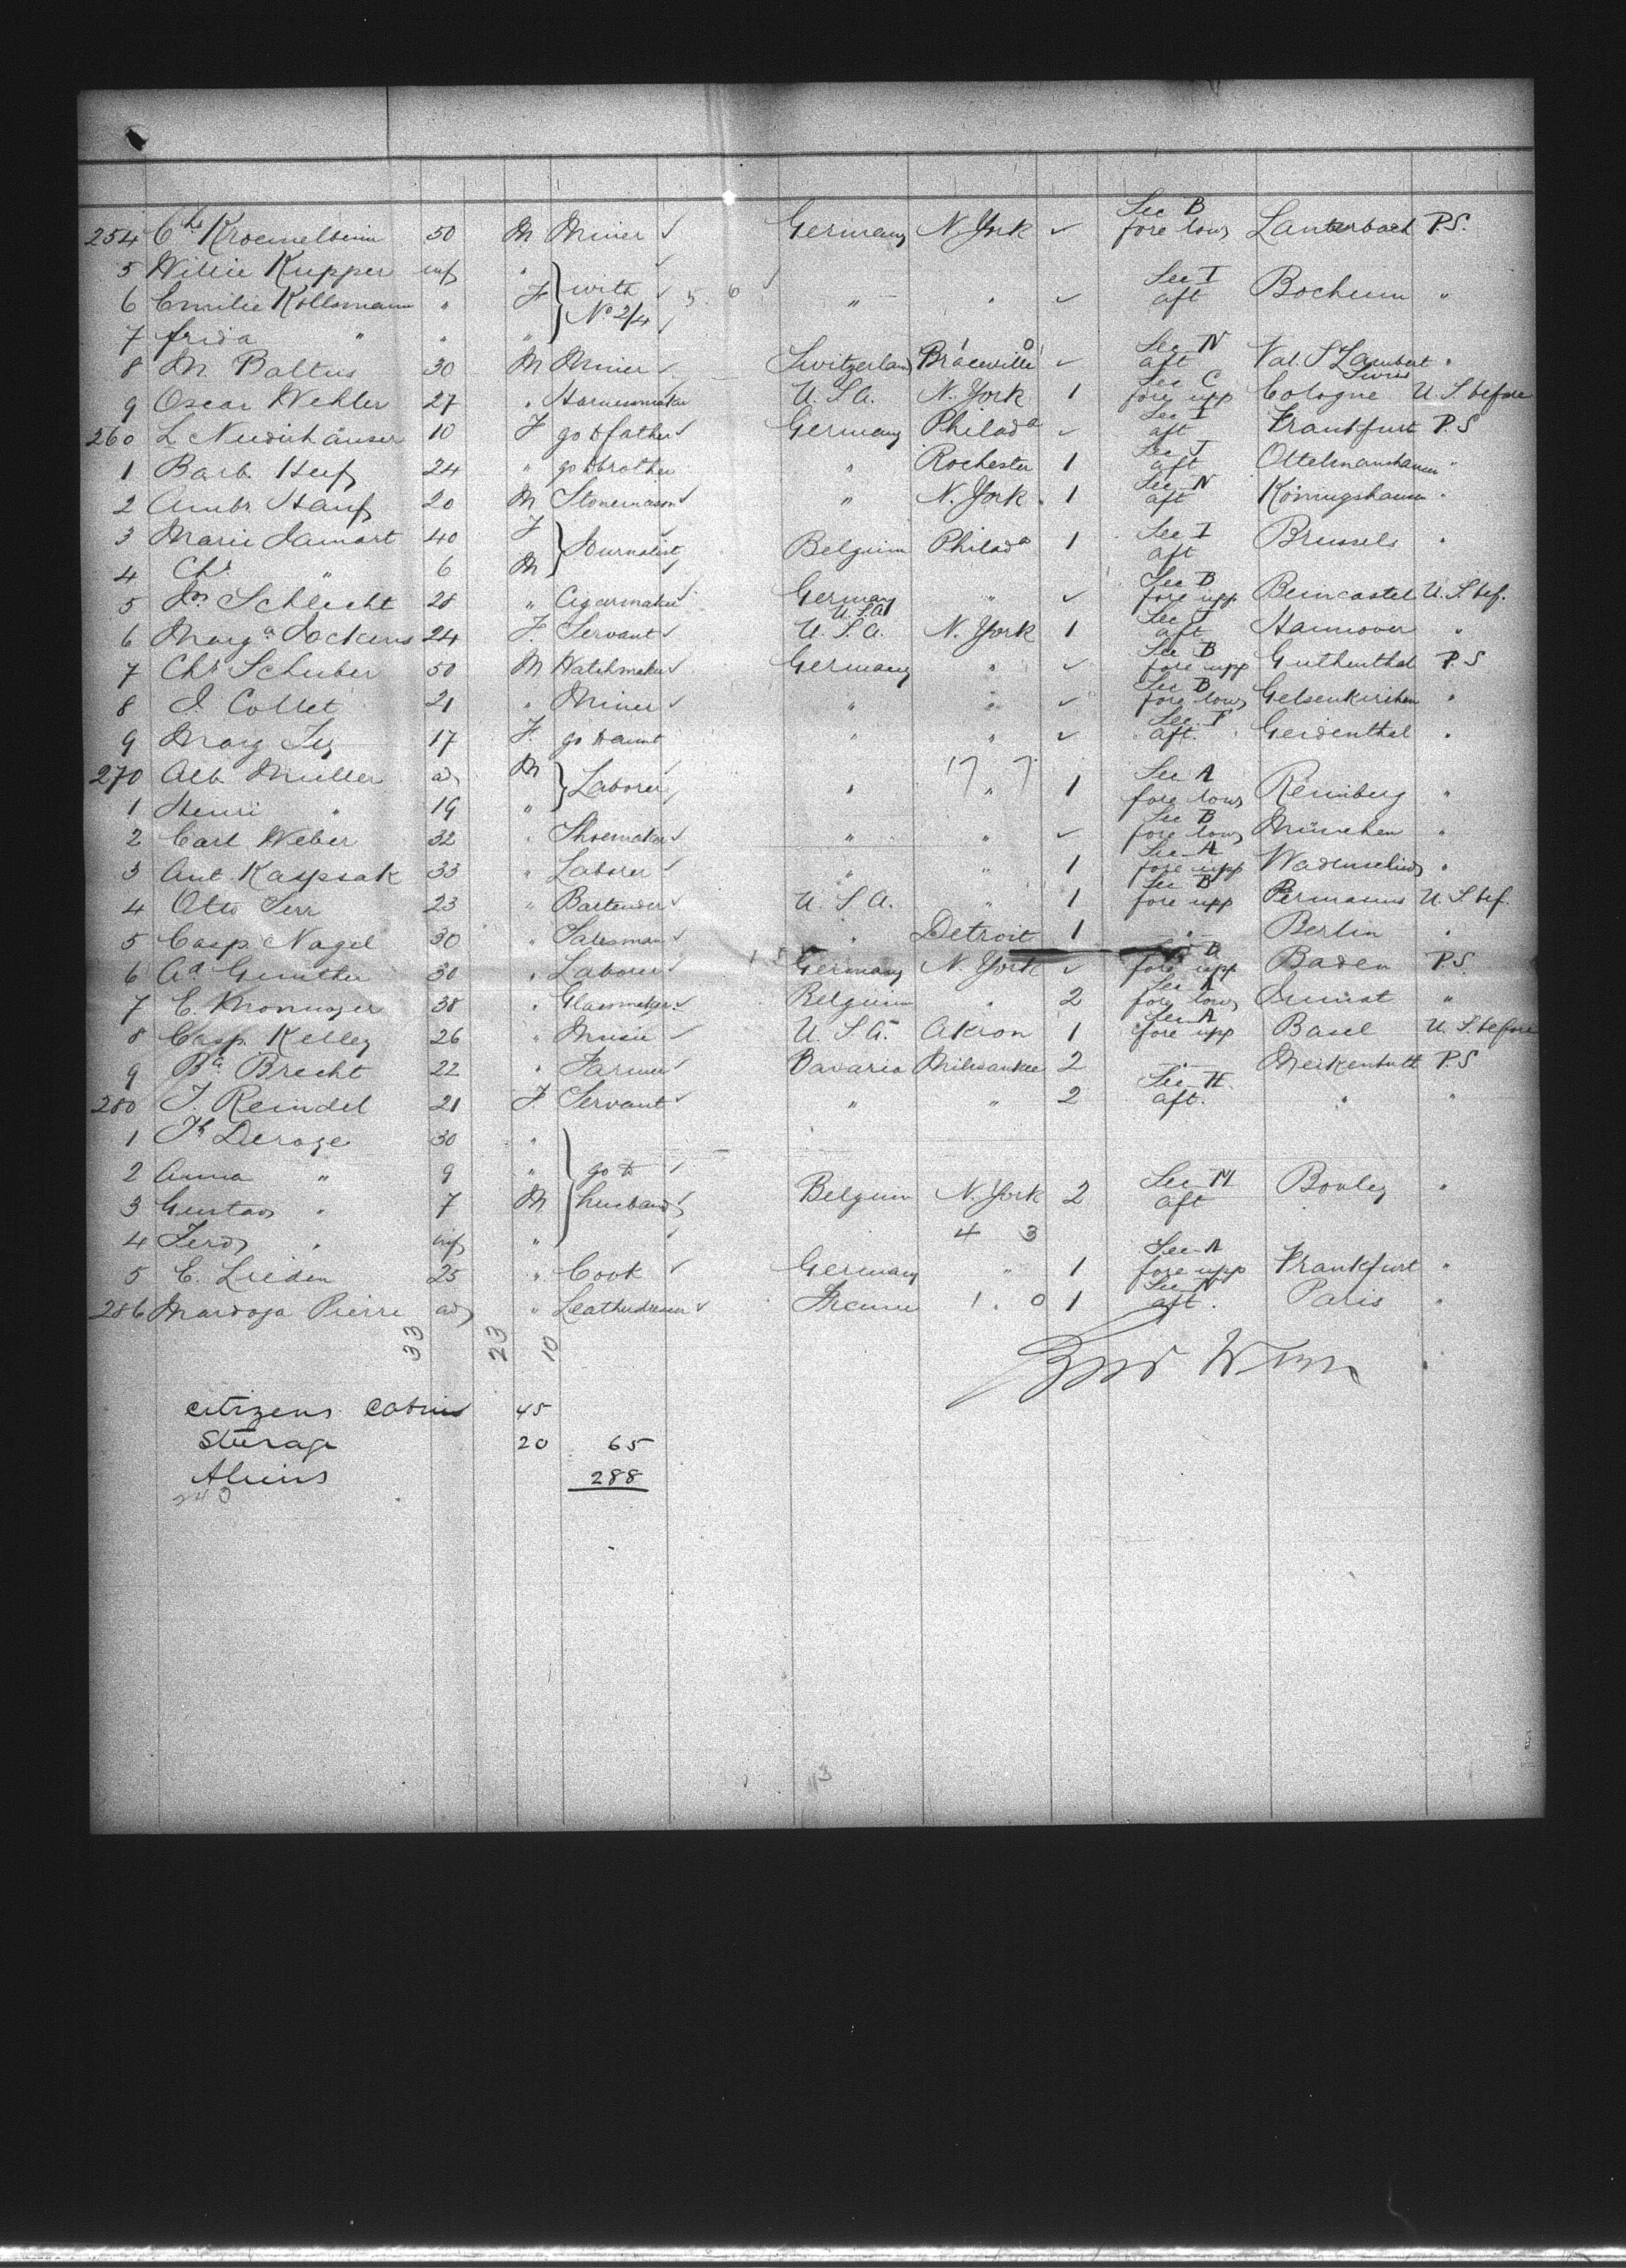 254 Chs Kroemelbein 50 M Miner ✓ Germany N. York ✓ Sec B fore low Lauterbach P.S.
5 Willie Kupper inf "
6 Emilie Kollsmann " F with No 2/4 5. 6 " " ✓ Sec I aft Bochum "
7 frida " " "
8 M Baltus 30 M Miner ✓ Switzerland Braceville ✓ Sec N aft Val. S Lambert "
9 Oscar Wehler 27 " Harnessmaker U. S. A. N. York 1 Sec C fore upp Cologne U. S before
260 L Neudichäuser 10 F go to father ✓ Germany Philada ✓ Sec I aft Frankfurt P. S
1 Barb. 24 " go to brother " Rochester 1 Sec J aft "
2 Ambr. 20 M Stonemason ✓ " N. York. 1 Sec N aft Königshausen "
3 Marie Lamort 40 F Journalist Belgium Philada 1 Sec I aft Brussels "
4 Chs " 6 M
5 Jos Schlecht 28 " Cigarmaker ✓ Germany U.S.A " ✓ Sec B fore upp Berncastel U. S bef.
6 Marga Lockens 24 F. Servant ✓ U. S. A. N. York 1 Sec J aft. Hannover "
7 Chs Schuber 50 M Watchmaker ✓ Germany " ✓ Sec B fore upp Guthenthal P. S
8 J. Collet 21 " Miner ✓ " " ✓ Sec B fore low Gelsenkirchen "
9 Marg 17 F. go to aunt " " ✓ Sec. F aft. Geidenthal "
270 Alb. Muller ad M Laborer " 17 7 " 1 Sec A fore low "
1 Henri " 19 "
2 Carl Weber 32 " Shoemaker ✓ " " ✓ Sec B fore low München "
3 Ant Kaspsak 33 " Laborer ✓ " " 1 Sec A fore upp "
4 Otto Serr 23 " Bartender ✓ U. S. A. " 1 Sec B fore upp Permasens U. S bef.
5 Casp. Nagel 30 " Salesman ✓ " Detroit 1 " Berlin "
6 Ad Gunther 30 " Laborer ✓ Germany N. York ✓ B fore upp Baden P.S.
7 C. 38 " Glassmaker ✓ Belgium " 2 Sec A fore low "
8 Casp. Kelley 26 " Music ✓ U. S. A. Akron 1 Sec A fore upp Basel U. S. before
9 Ba Brecht 22 " Farmer ✓ Bavaria Milwaukee 2 " P. S
280 T. Reindel 21 F. Servant ✓ " " 2 Sec H. aft. " "
1 Th Deroge 30 "
2 Anna " 9 " go to
3 Gustav " 7 M husband Belgium N. York 2 Sec M aft Bouley "
4 Ferd " inf " 4 3
5 C. Lieden 25 " Cook ✓ Germany " 1 Sec A fore upp Frankfurt "
286 Mardoga Pierre ad " Leatherdresser ✓ France 1 . 0 1 Sec N aft. Paris "
33 23 10
citizens cabins 45
Sterage 20 65
Aliens 288